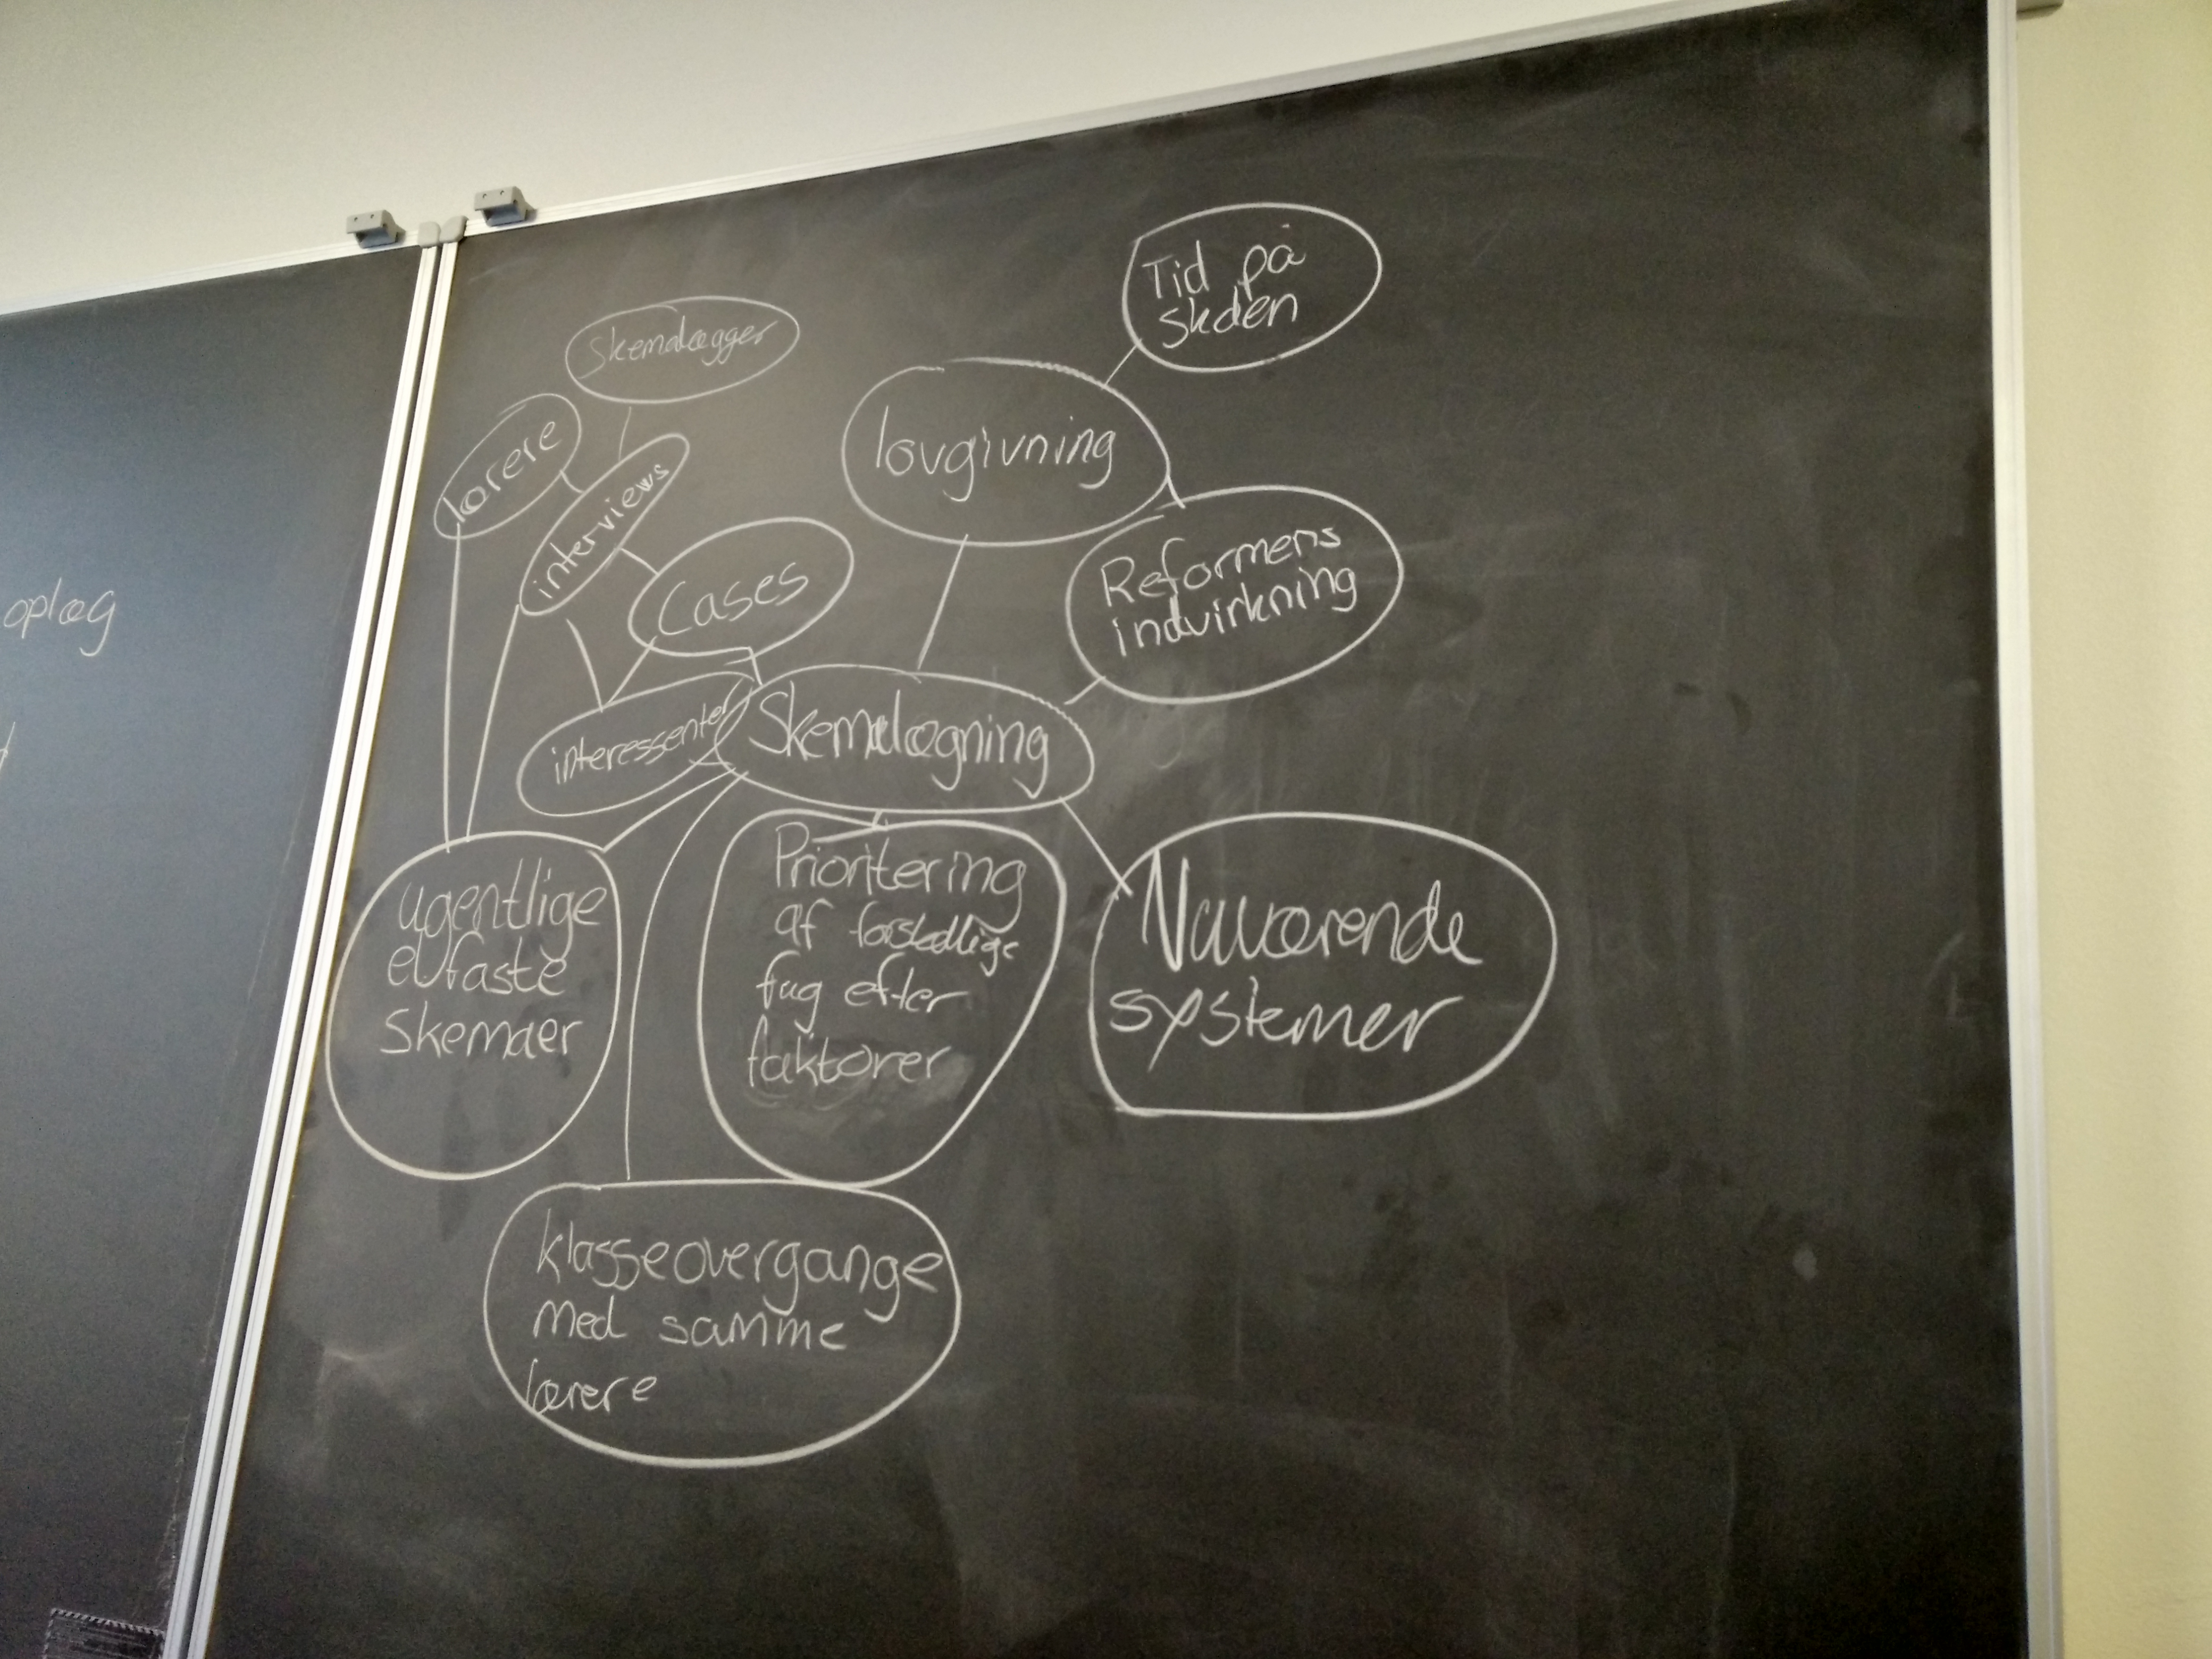 oplæg
Skemalægger
lærere
interviews
Cases
lovgivning
Tid på
skolen
Reformens
indvirkning
interessenter
Skemalægning
ugentlige
el/faste
skemaer
Prioritering
af forskellige
fag efter
faktorer
Nuværende
systemer
klasseovergange
med samme
lærere